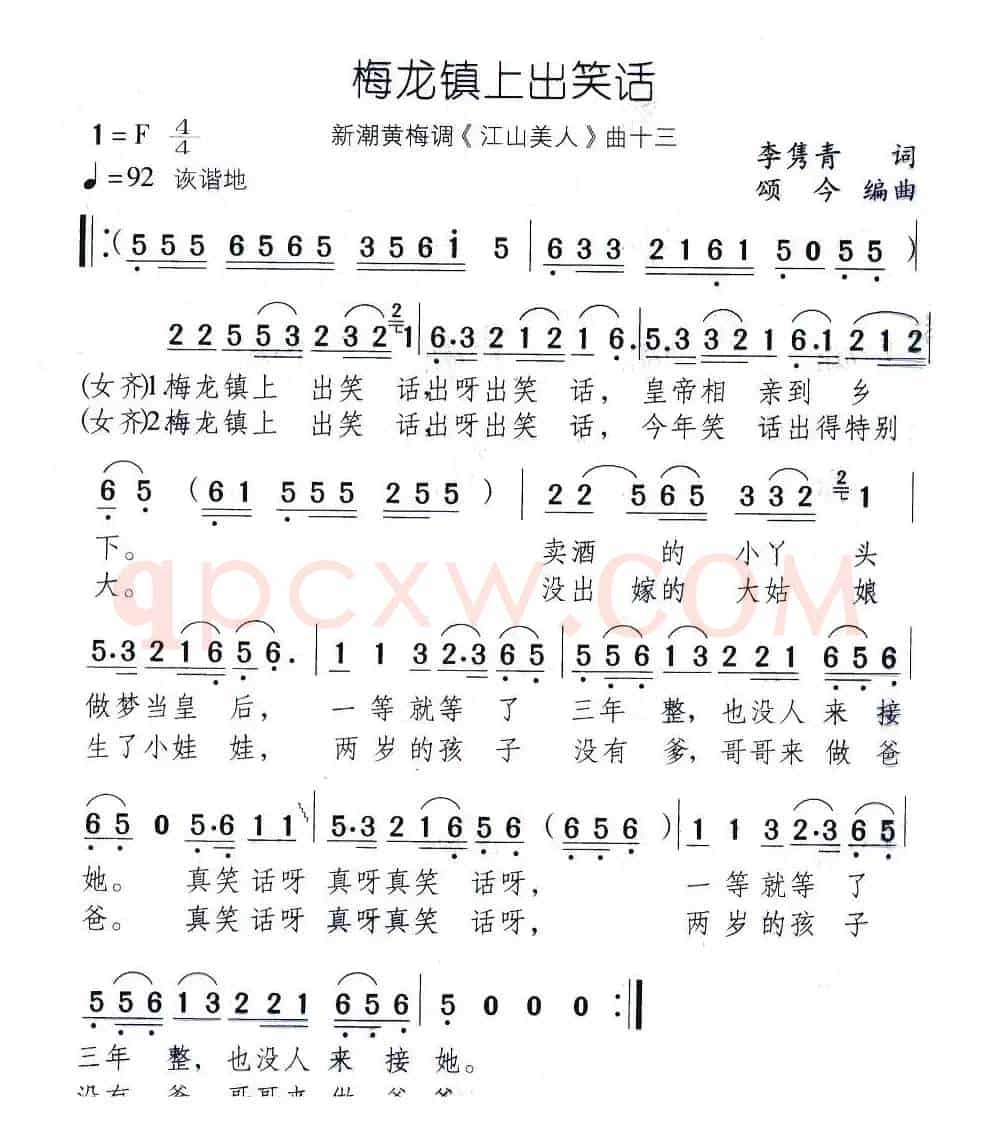 梅龙镇上出笑话
1=F 4/4 新潮黄梅调《江山美人》曲十三
♩=92 诙谐地
李隽青 词
颂今 编曲
(5 5 5 6 5 6 5 3 5 6 i 5 | 6 3 3 2 1 6 1 5 0 5 5 )
2 2 5 5 3 2 3 2 2 1 | 6·3 2 1 2 1 6· | 5·3 3 2 1 6·1 2 1 2 |
(女齐)1.梅龙镇上 出笑 话,出呀出笑 话, 皇帝相 亲到 乡
(女齐)2.梅龙镇上 出笑 话,出呀出笑 话, 今年笑 话出得特别
6 5 ( 6 1 5 5 5 2 5 5 ) | 2 2 5 6 5 3 3 2 2 1 |
下。 卖酒 的 小丫 头
大。 没出 嫁的 大姑 娘
qpcxw.COM
5·3 2 1 6 5 6· | 1 1 3 2·3 6 5 | 5 5 6 1 3 2 2 1 6 5 6 |
做梦当皇 后, 一等就等 了 三年 整, 也没人 来 接
生了小娃 娃, 两岁的孩 子 没有 爹, 哥哥来 做 爸
6 5 0 5·6 1 1 | 5·3 2 1 6 5 6 ( 6 5 6 ) | 1 1 3 2·3 6 5 |
她。 真笑 话呀 真呀真笑 话呀, 一等就等 了
爸。 真笑 话呀 真呀真笑 话呀, 两岁的孩 子
5 5 6 1 3 2 2 1 6 5 6 | 5 0 0 0 :|
三年 整, 也没人 来 接 她。
没有 爹, 哥哥来 做 爸 爸。